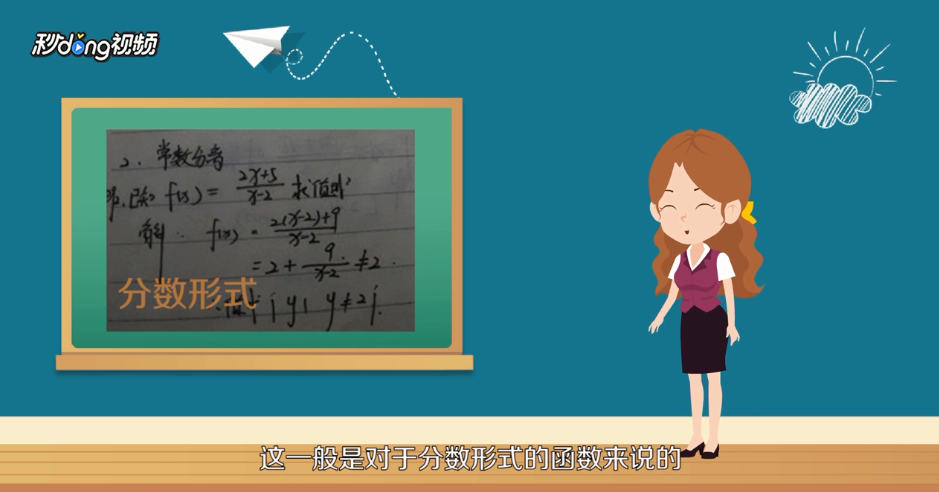 秒dong视频
2、常数分离
例.已知 f(x) = 2x+5/x-2 求值域
解: f(x) = 2(x-2)+9/x-2
= 2 + 9/x-2 ≠2.
分数形式
{y| y≠2}.
这一般是对于分数形式的函数来说的